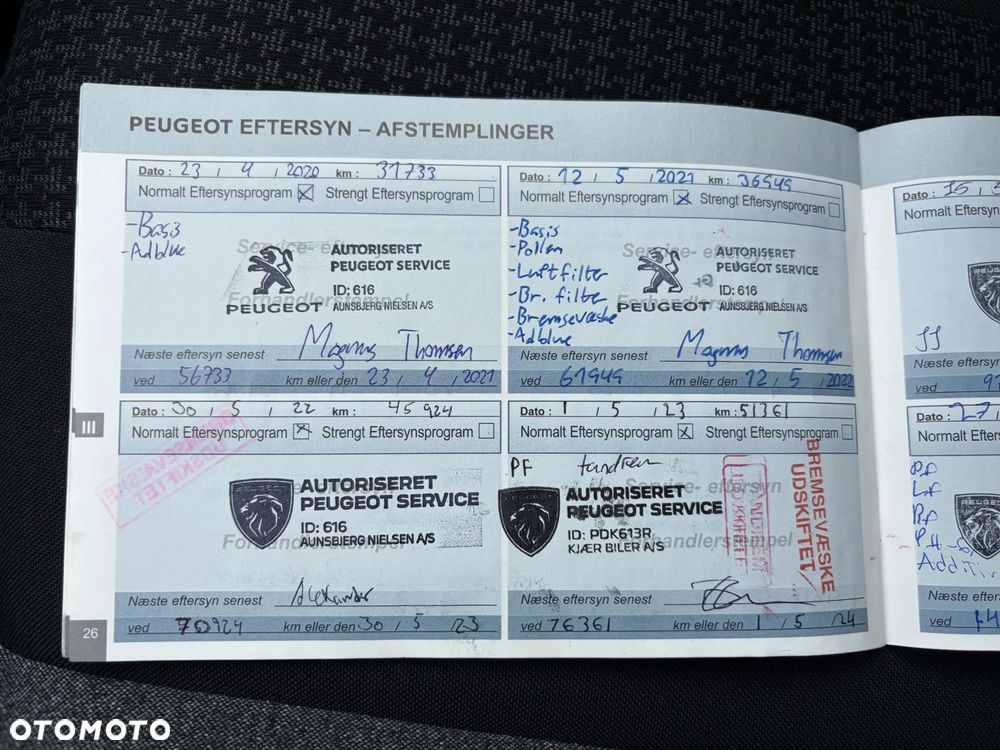 PEUGEOT EFTERSYN – AFSTEMPLINGER
Dato : 23 / 4 / 2020 km : 31733
Normalt Eftersynsprogram Strengt Eftersynsprogram
-Basis
-Adblue
Service- eftersyn
AUTORISERET
PEUGEOT SERVICE
ID: 616
AUNSBJERG NIELSEN A/S
PEUGEOT
Forhandlerstempel
Magnus Thomsen
Næste eftersyn senest
ved 56733 km eller den 23 / 4 / 2021
Dato : 12 / 5 / 2021 km : 36949
Normalt Eftersynsprogram Strengt Eftersynsprogram
-Basis
-Pollen
-Luftfilter
-Br. filter
-Bremsevæske
-Adblue
Service- eftersyn
AUTORISERET
PEUGEOT SERVICE
ID: 616
AUNSBJERG NIELSEN A/S
PEUGEOT
Forhandlerstempel
Magnus Thomsen
Næste eftersyn senest
ved 61949 km eller den 12 / 5 / 2022
III
Dato : 30 / 5 / 22 km : 45924
Normalt Eftersynsprogram Strengt Eftersynsprogram
BREMSEVÆSKE
UDSKIFTET
AUTORISERET
PEUGEOT SERVICE
ID: 616
AUNSBJERG NIELSEN A/S
Forhandlerstempel
Alexander
Næste eftersyn senest
ved 70924 km eller den 30 / 5 / 23
Dato : 1 / 5 / 23 km : 51361
Normalt Eftersynsprogram Strengt Eftersynsprogram
PF tandrem
Service- eftersyn
AUTORISERET
PEUGEOT SERVICE
ID: PDK613R
KJÆR BILER A/S
Forhandlerstempel
TANDREM
UDSKIFTET
BREMSEVÆSKE
UDSKIFTET
Næste eftersyn senest
ved 76361 km eller den 1 / 5 / 24
26
Dato : 15 /
Normalt Eftersyn
JJ
Næste efter
ved
Dato : 27 /
Normalt Ef
LF
Additi
Næste efte
ved
OTOMOTO